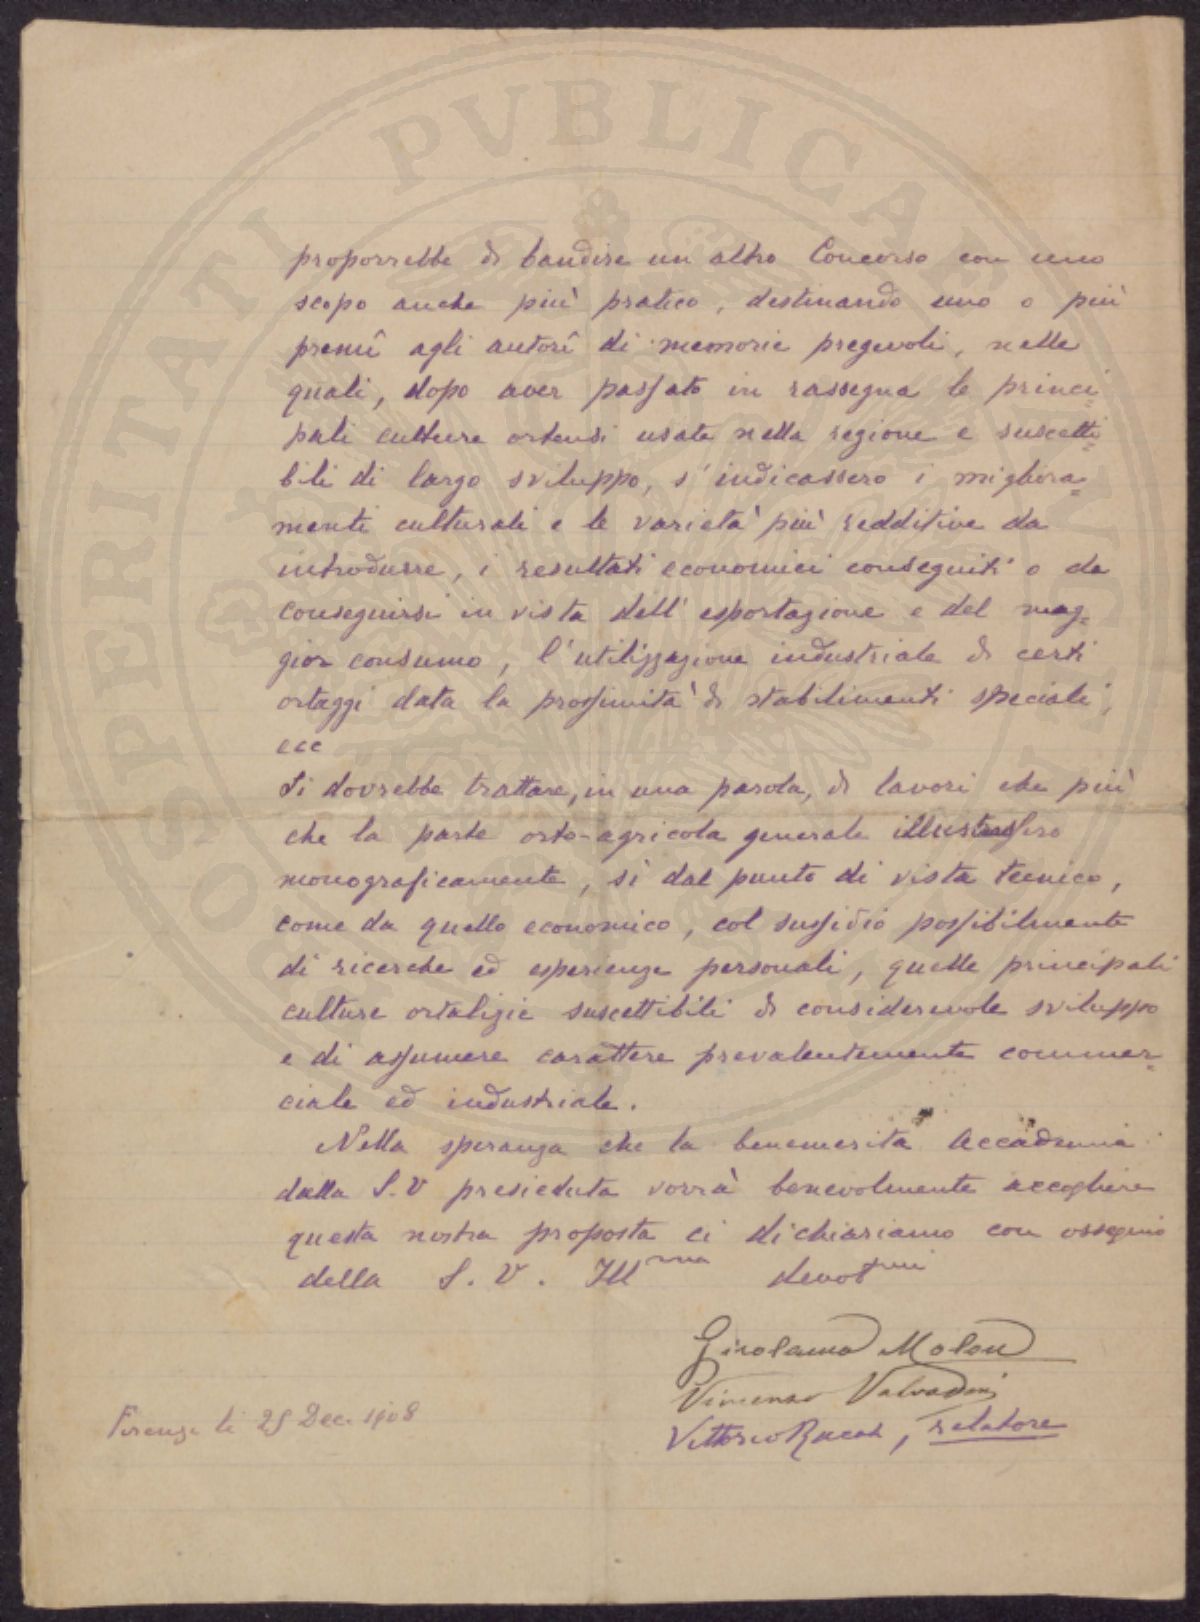 PROSPERITATI PVBLICAE
proporrebbe di bandire un altro Concorso con uno
scopo anche più pratico, destinando uno o più
premî agli autorî di memorie pregevoli, nelle
quali, dopo aver passato in rassegna le princi-
pali culture ortensi usate nella regione e suscetti=
bili di largo sviluppo, s'indicassero i migliora=
menti culturali e le varietà più redditive da
introdurre, i resultati economici conseguiti o da
conseguirsi in vista dell'esportazione e del mag=
gior consumo, l'utilizzazione industriale di certi
ortaggi data la prossimità di stabilimenti speciali,
ecc
Si dovrebbe trattare, in una parola, di lavori che più
che la parte orto-agricola generale illustrassero
monograficamente, sì dal punto di vista tecnico,
come da quello economico, col sussidio possibilmente
di ricerche ed esperienze personali, quelle principali
culture ortalizie suscettibili di considerevole sviluppo
e di assumere carattere prevalentemente commer=
ciale ed industriale.
Nella speranza che la benemerita Accademia
dalla S.V presieduta vorrà benevolmente accogliere
questa nostra proposta ci dichiariamo con ossequio
della S. V. Ill^ma devot^mi
Girolamo Molon
Vincenzo Valvassori
Vittorio Racah, relatore
Firenze li 25 Dec. 1908